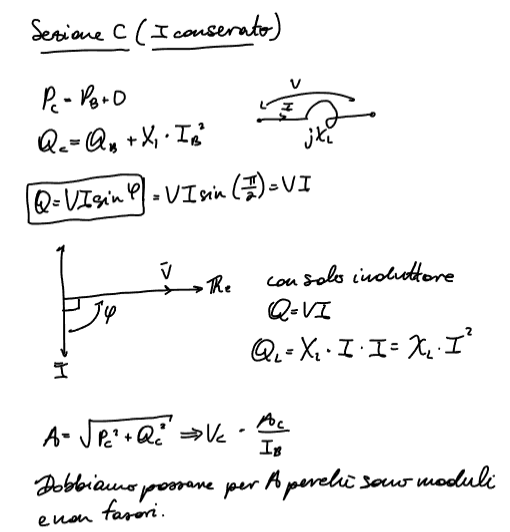 Sezione C (I conservato)
P_C = P_B + 0
Q_C = Q_B + X_L · I_B²
V
I
jX_L
Q = VI sin φ = VI sin (π/2) = VI
V̄
Re
φ
Ī
con solo induttore
Q = VI
Q_L = X_L · I · I = X_L · I²
A = √(P_C² + Q_C²) ⇒ V_C = A_C / I_B
Dobbiamo passare per A perché sono moduli
e non fasori.